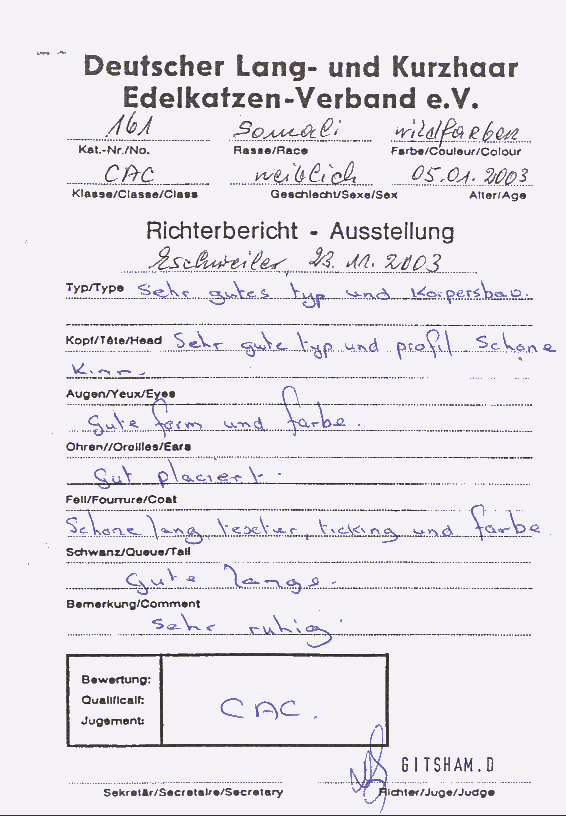 Deutscher Lang- und Kurzhaar
Edelkatzen-Verband e.V.
161 Somali wildfarben
Kat.-Nr./No. Rasse/Race Farbe/Couleur/Colour
CAC weiblich 05.01.2003
Klasse/Classe/Class Geschlecht/Sexe/Sex Alter/Age
Richterbericht - Ausstellung
Eschweiler, 23.11.2003
Typ/Type Sehr gutes typ und Korpersbau.
Kopf/Tête/Head Sehr gute typ und profil Schone
Kinn.
Augen/Yeux/Eyes
Gute form und farbe.
Ohren//Oreilles/Ears
Gut placiert.
Fell/Fourrure/Coat
Schone lang textier, ticking und farbe
Schwanz/Queue/Tail
Gute lange.
Bemerkung/Comment
Sehr ruhig.
Bewertung:
Qualificatif:
Jugement:
CAC.
GITSHAM.D
Sekretär/Secretaire/Secretary Richter/Juge/Judge